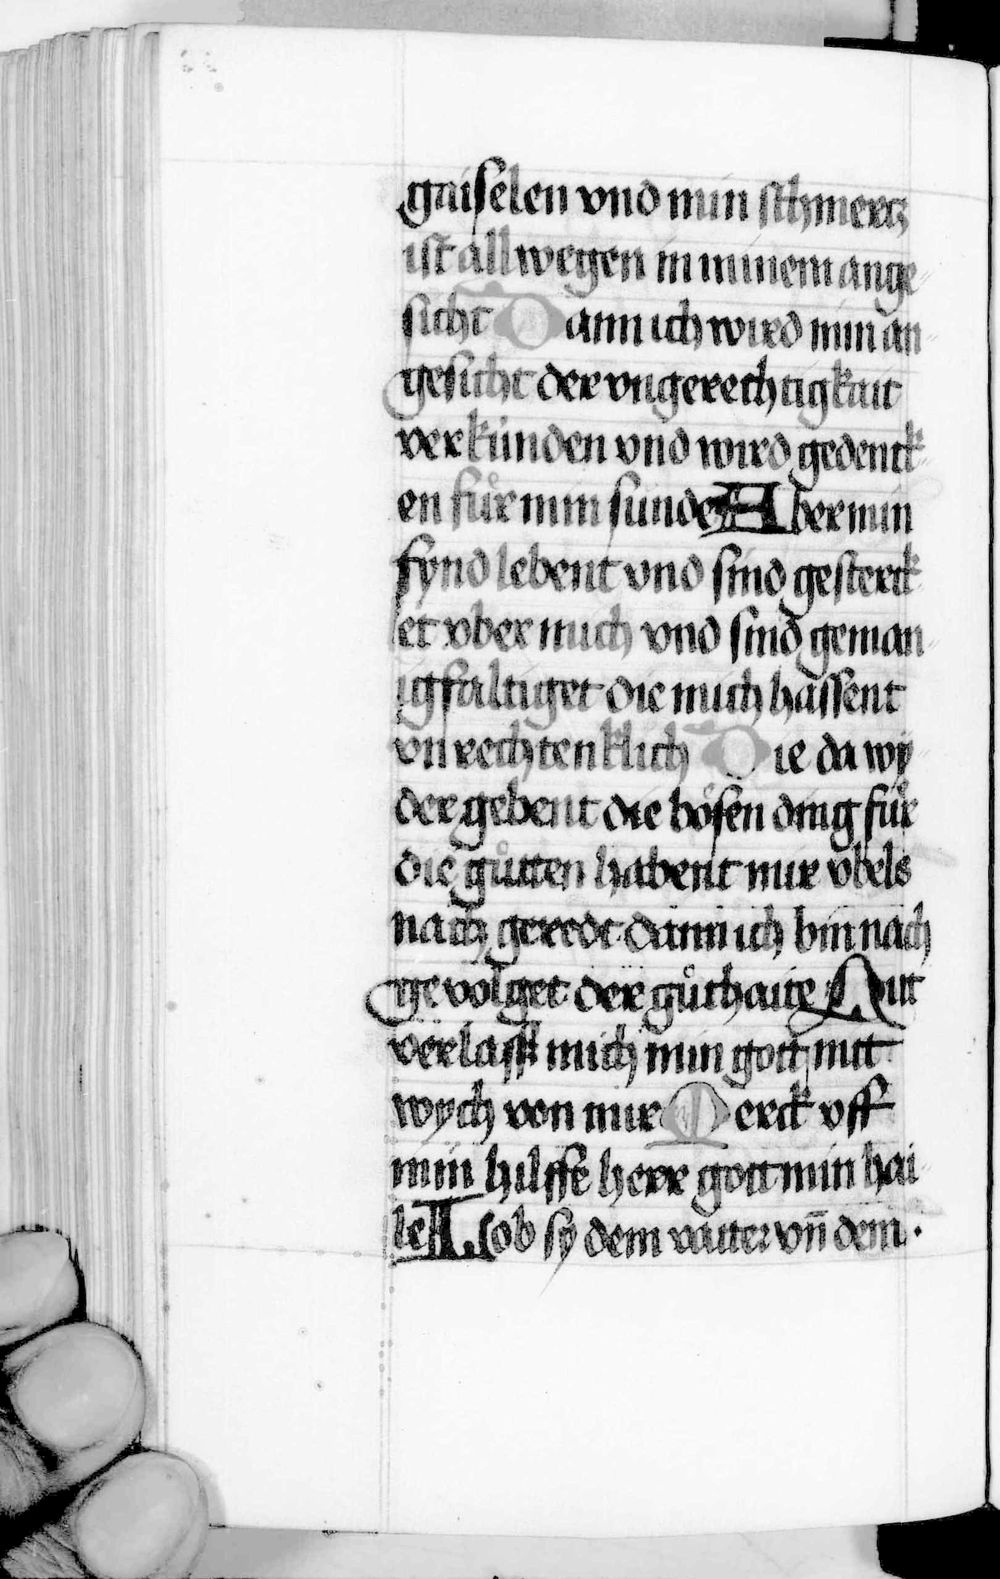 gaiselen vnd min schmercz
ist allwegen in minem ange-
sicht Dann ich wird min an-
gesicht der vngerechtigkait
verkünden vnd wird gedenck-
en fu̓r min sünde Aber min
fynd lebent vnd sind gesterck-
et vber mich vnd sind geman-
igfaltiget die mich hassent
vnrechtenklich Die da wy-
der gebent die bösen ding für
die gůtten habent mir vbels
nach geredt dann ich bin nach
gevolget der gůthaite Nit
verlass mich min gott nitt
wych von mir Merck vff
min hilffe herr gott min hai-
les Lob sy dem vatter vn̄ dem ·